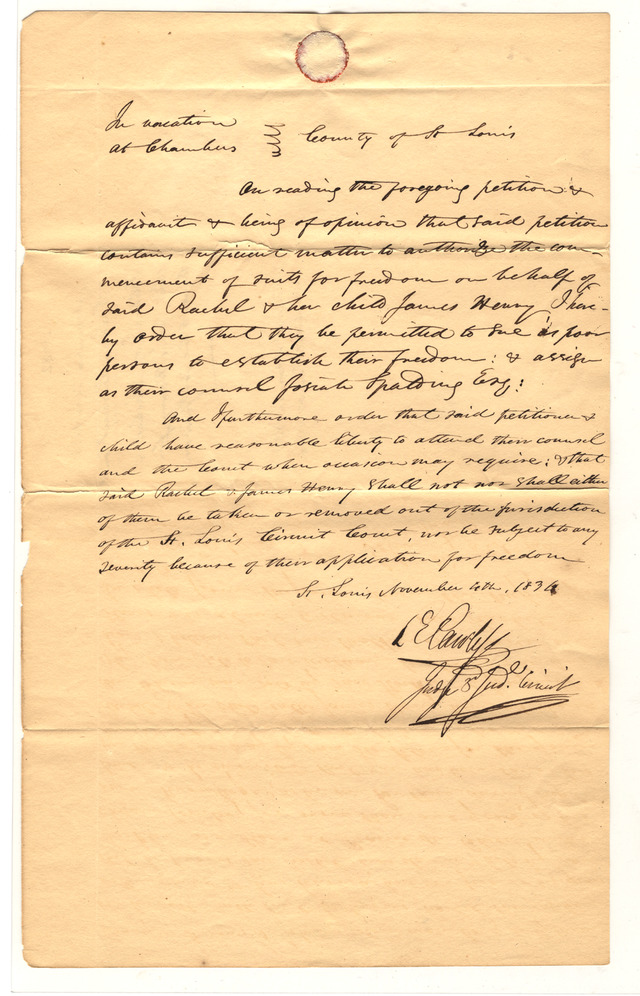 In vacation
at Chambers } County of St Louis
On reading the foregoing petition &
affidavit & being of opinion that said petition
contains sufficient matter to authorize the com-
mencement of suits for freedom on behalf of
said Rachel & her child James Henry I here-
by order that they be permitted to sue as poor
persons to establish their freedom: & assign
as their counsel Josiah Spalding Esq:
And I furthermore order that said petitioner &
child have reasonable liberty to attend their counsel
and the Court when occasion may require; & that
said Rachel & James Henry shall not nor shall either
of them be taken or removed out of the jurisdiction
of the St. Louis Circuit Court, nor be subject to any
severity because of their application for freedom
St. Louis November 4th, 1834
L E Lawless
Judge 3d Jud. Circuit